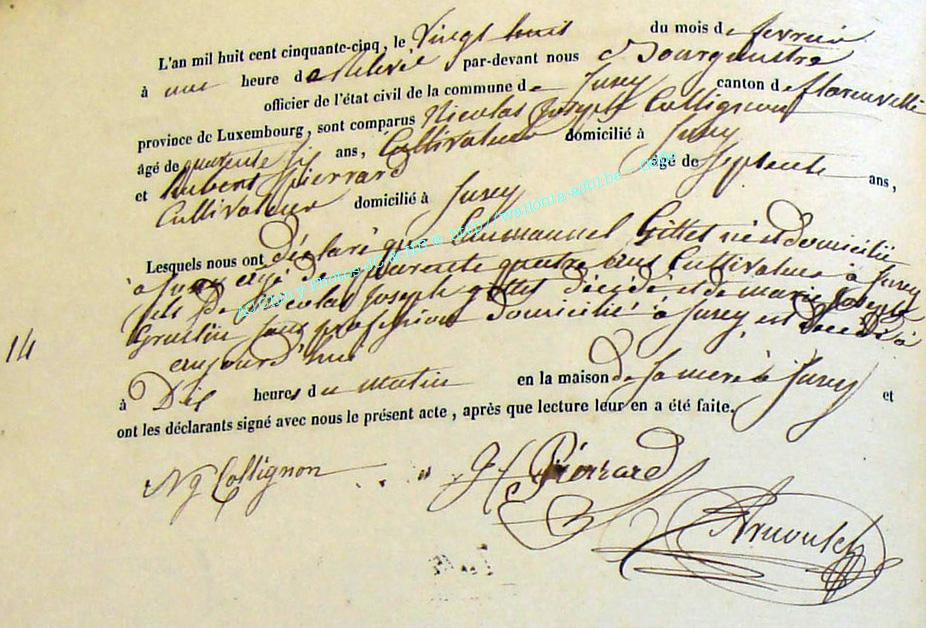 L'an mil huit cent cinquante-cinq, le Vingt huit du mois de fevrier
à une heure de Relevé par-devant nous Bourguestre
officier de l'état civil de la commune de Susey canton de florenville
province de Luxembourg, sont comparus Nicolas Joseph Collignon
âgé de quarente six ans, Cultivateur domicilié à Susey
et hubert Pierrard âgé de Septente ans,
Cultivateur domicilié à Susey
Lesquels nous ont déclaré que Emmannuel Gittet né et domicilié
à Susey agé de quarente quatre ans Cultivateur à Susey
fils de Nicolas Joseph gittet décédé et de marie Joseph
sans profession domicilié à Susey est décédé à
14
aujourd'hui
à Dix heures du matin en la maison de sa mere à Susey et
ont les déclarants signé avec nous le présent acte, après que lecture leur en a été faite.
Nj Collignon H Pierrard
Arnould